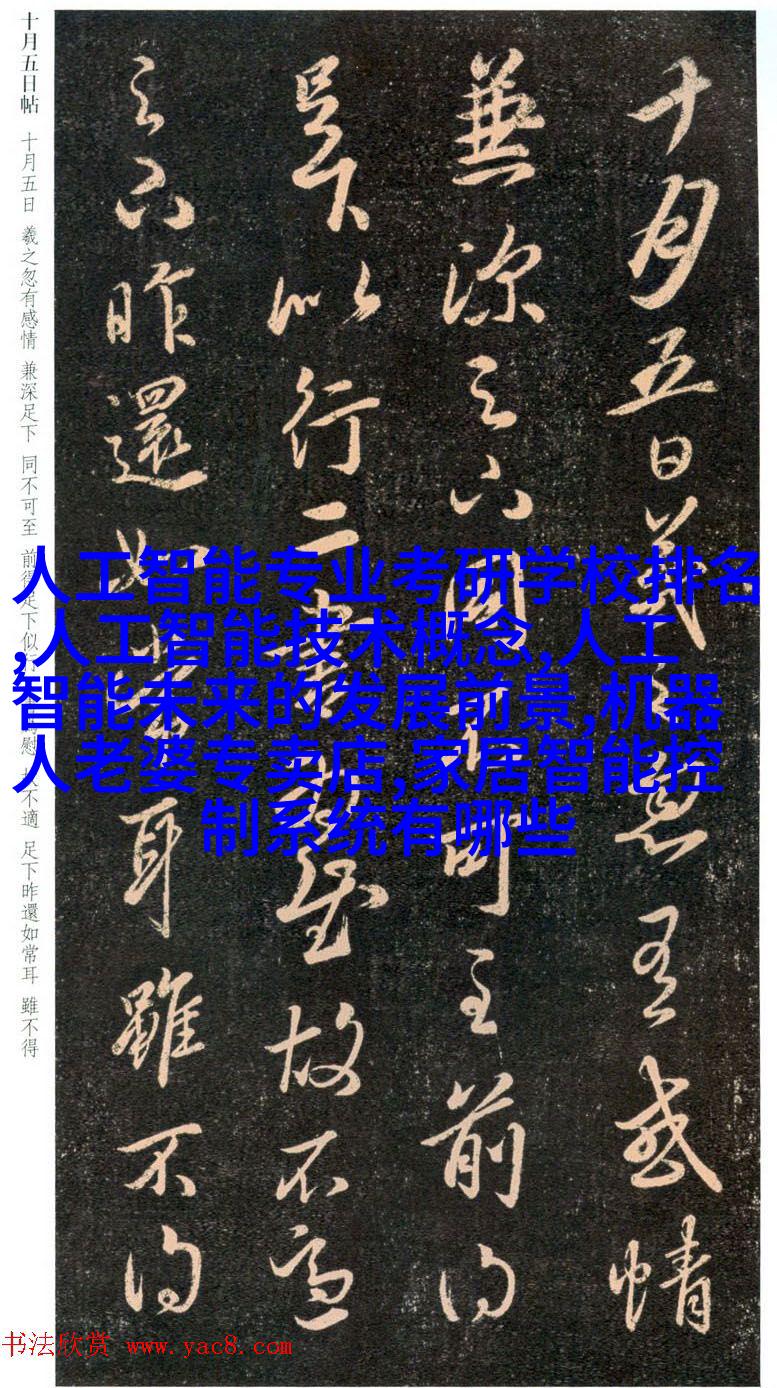 十月五日帖 十月五日 羲之忽有感情 兼深足下 同不可至 前得足下似 慰 不適 足下昨還如常耳 雖不得
十月五日羲之忽有感情
兼深足下同不可至前得
足下以行二 慰故不適
足下昨還如常耳雖不得
人工智能专业考研学校排名
,人工智能技术概念,人工
智能未来的发展前景,机器
人老婆专卖店,家居智能控
制系统有哪些
书法欣赏 www.yac8.com